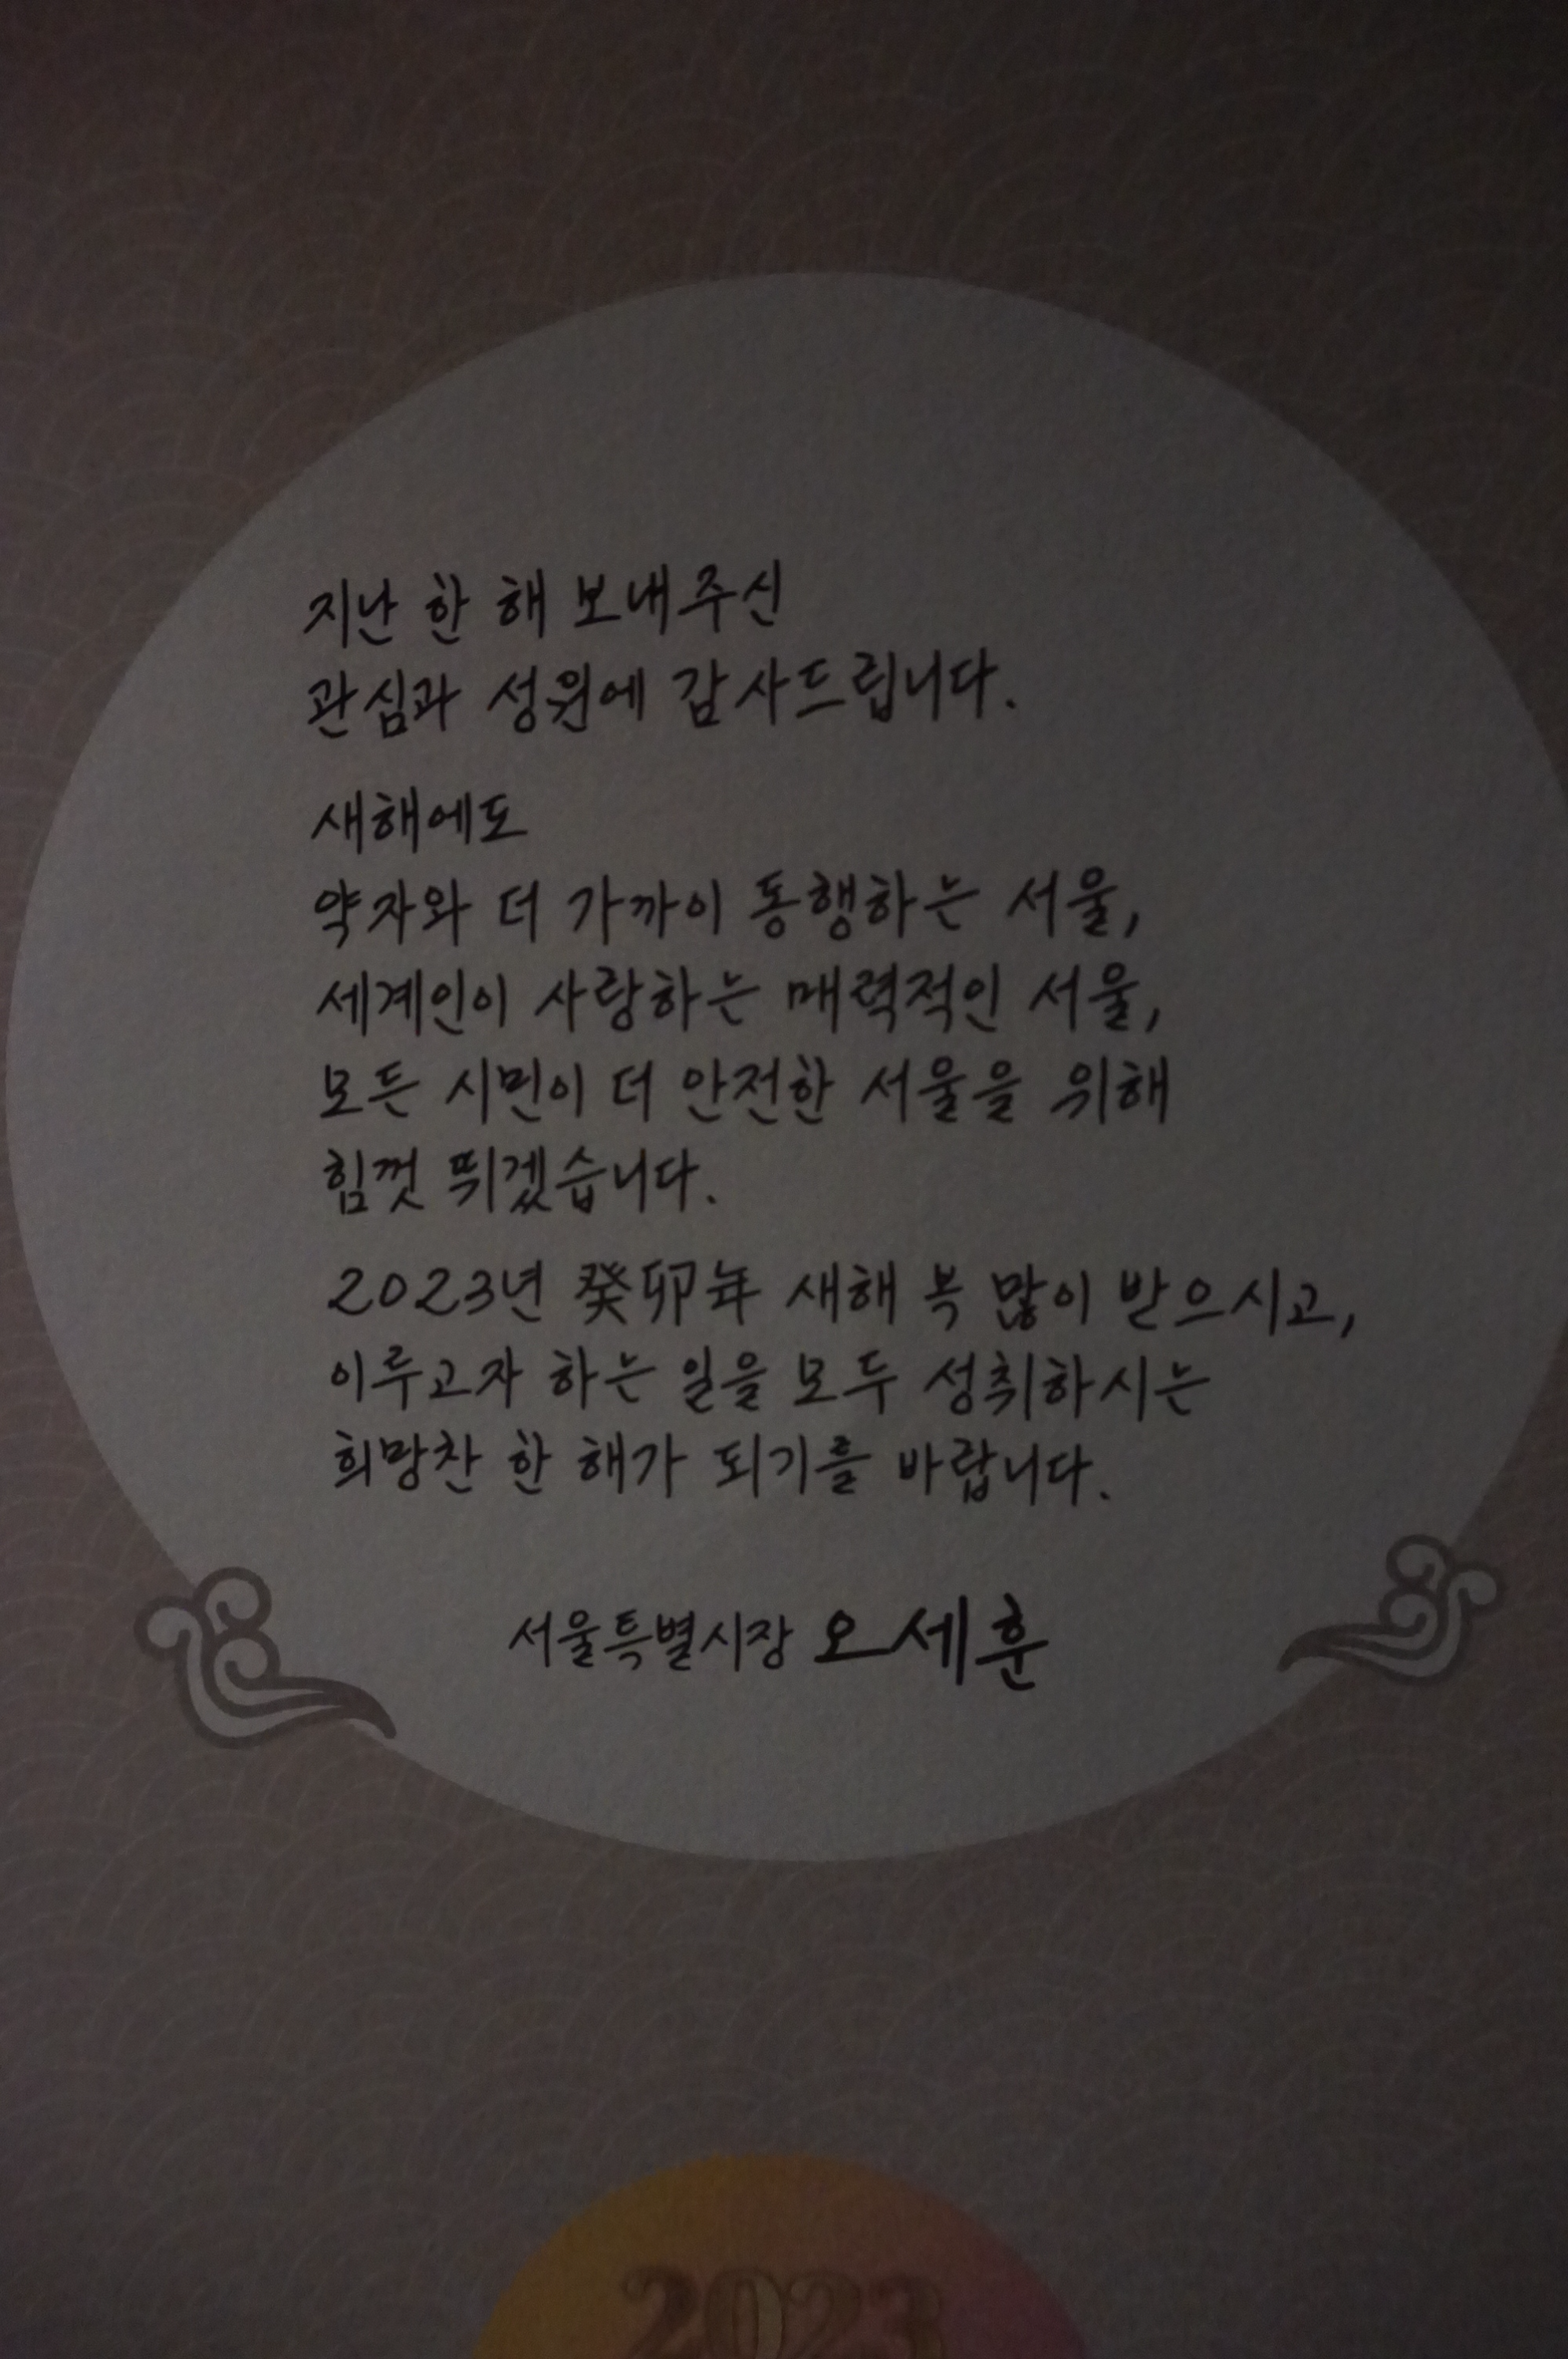 지난 한 해 보내주신
관심과 성원에 감사드립니다.
새해에도
약자와 더 가까이 동행하는 서울,
세계인이 사랑하는 매력적인 서울,
모든 시민이 더 안전한 서울을 위해
힘껏 뛰겠습니다.
2023년 癸卯年 새해 복 많이 받으시고,
이루고자 하는 일을 모두 성취하시는
희망찬 한 해가 되기를 바랍니다.
서울특별시장 오세훈
2023